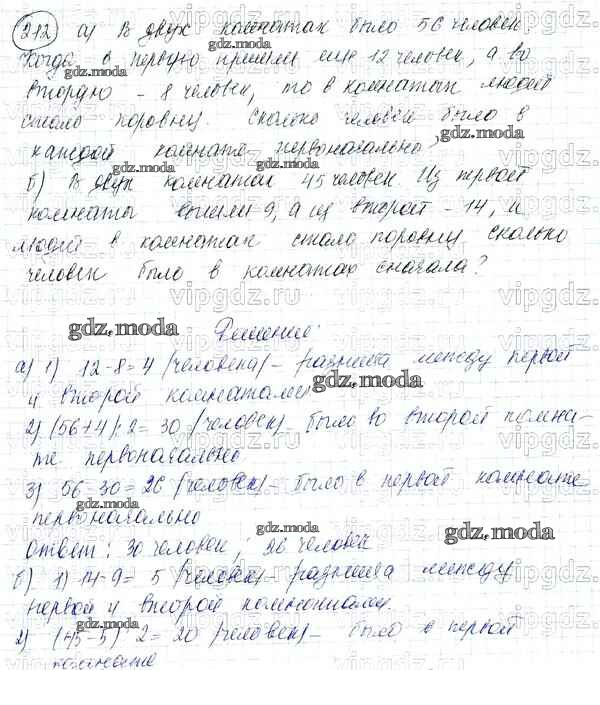 212 а) В двух комнатах было 56 человек
Когда в первую пришли еще 12 человек, а во
вторую - 8 человек, то в комнатах людей
стало поровну. Сколько человек было в
каждой комнате первоначально?
б) В двух комнатах 45 человек. Из первой
комнаты вышли 9, а из второй - 14, и
людей в комнатах стало поровну. Сколько
человек было в комнатах сначала?
Решение:
а) 1) 12-8=4 (человека) - разница между первой
и второй комнатами
2) (56+4):2=30 (человек) - было во второй комна-
те первоначально
3) 56-30=26 (человек) - было в первой комнате
первоначально
Ответ: 30 человек; 26 человек
б) 1) 14-9=5 (человек) - разница между
первой и второй комнатами.
2) (45-5):2=20 (человек) - было в первой
комнате
gdz.moda
vipgdz.ru